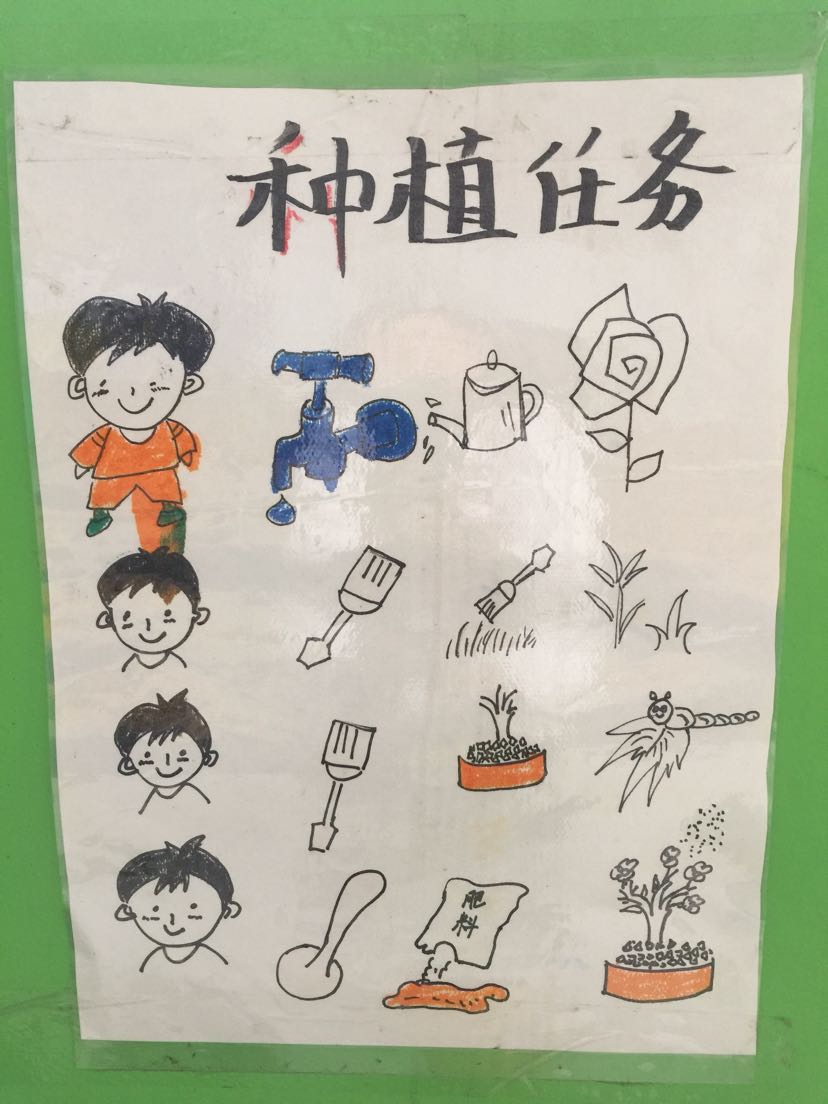 种植任务
肥
料